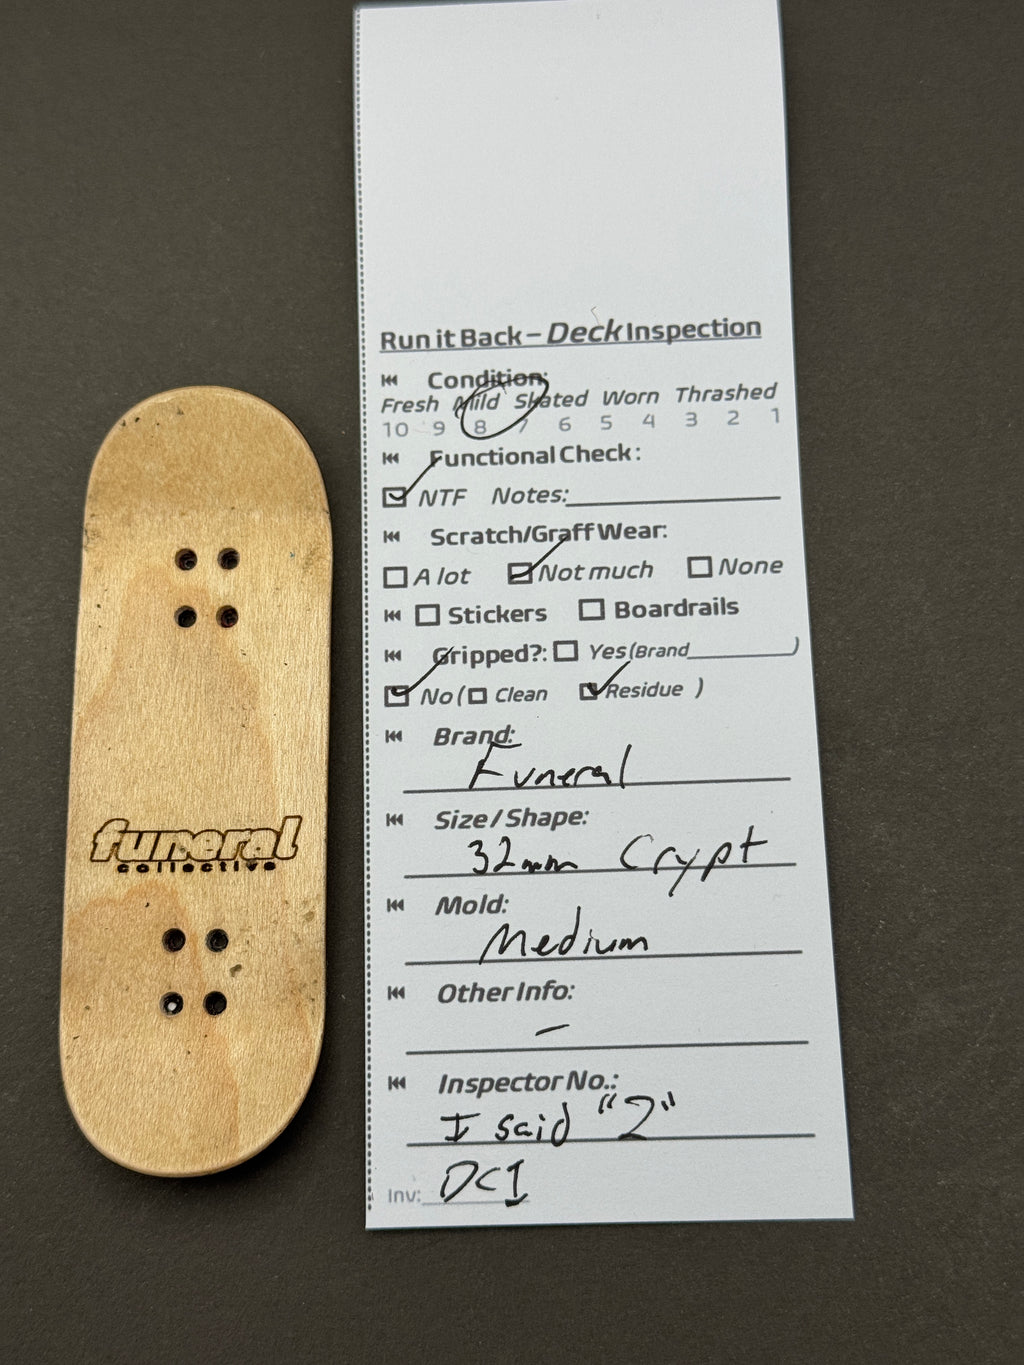 funeral
collective
Run it Back – Deck Inspection
Condition:
Fresh Mild Skated Worn Thrashed
10 9 8 7 6 5 4 3 2 1
Functional Check:
NTF Notes:
Scratch/Graff Wear:
A lot Not much None
Stickers Boardrails
Gripped?: Yes (Brand )
No ( Clean Residue )
Brand:
Funeral
Size / Shape:
32mm Crypt
Mold:
Medium
Other Info:
–
Inspector No.:
I said "2"
Inv: DC1